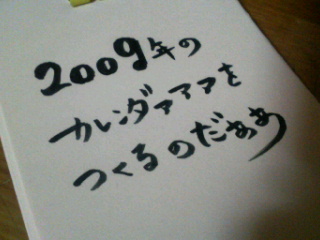 2009年の
カレンダァァァを
つくるのだぁぁ